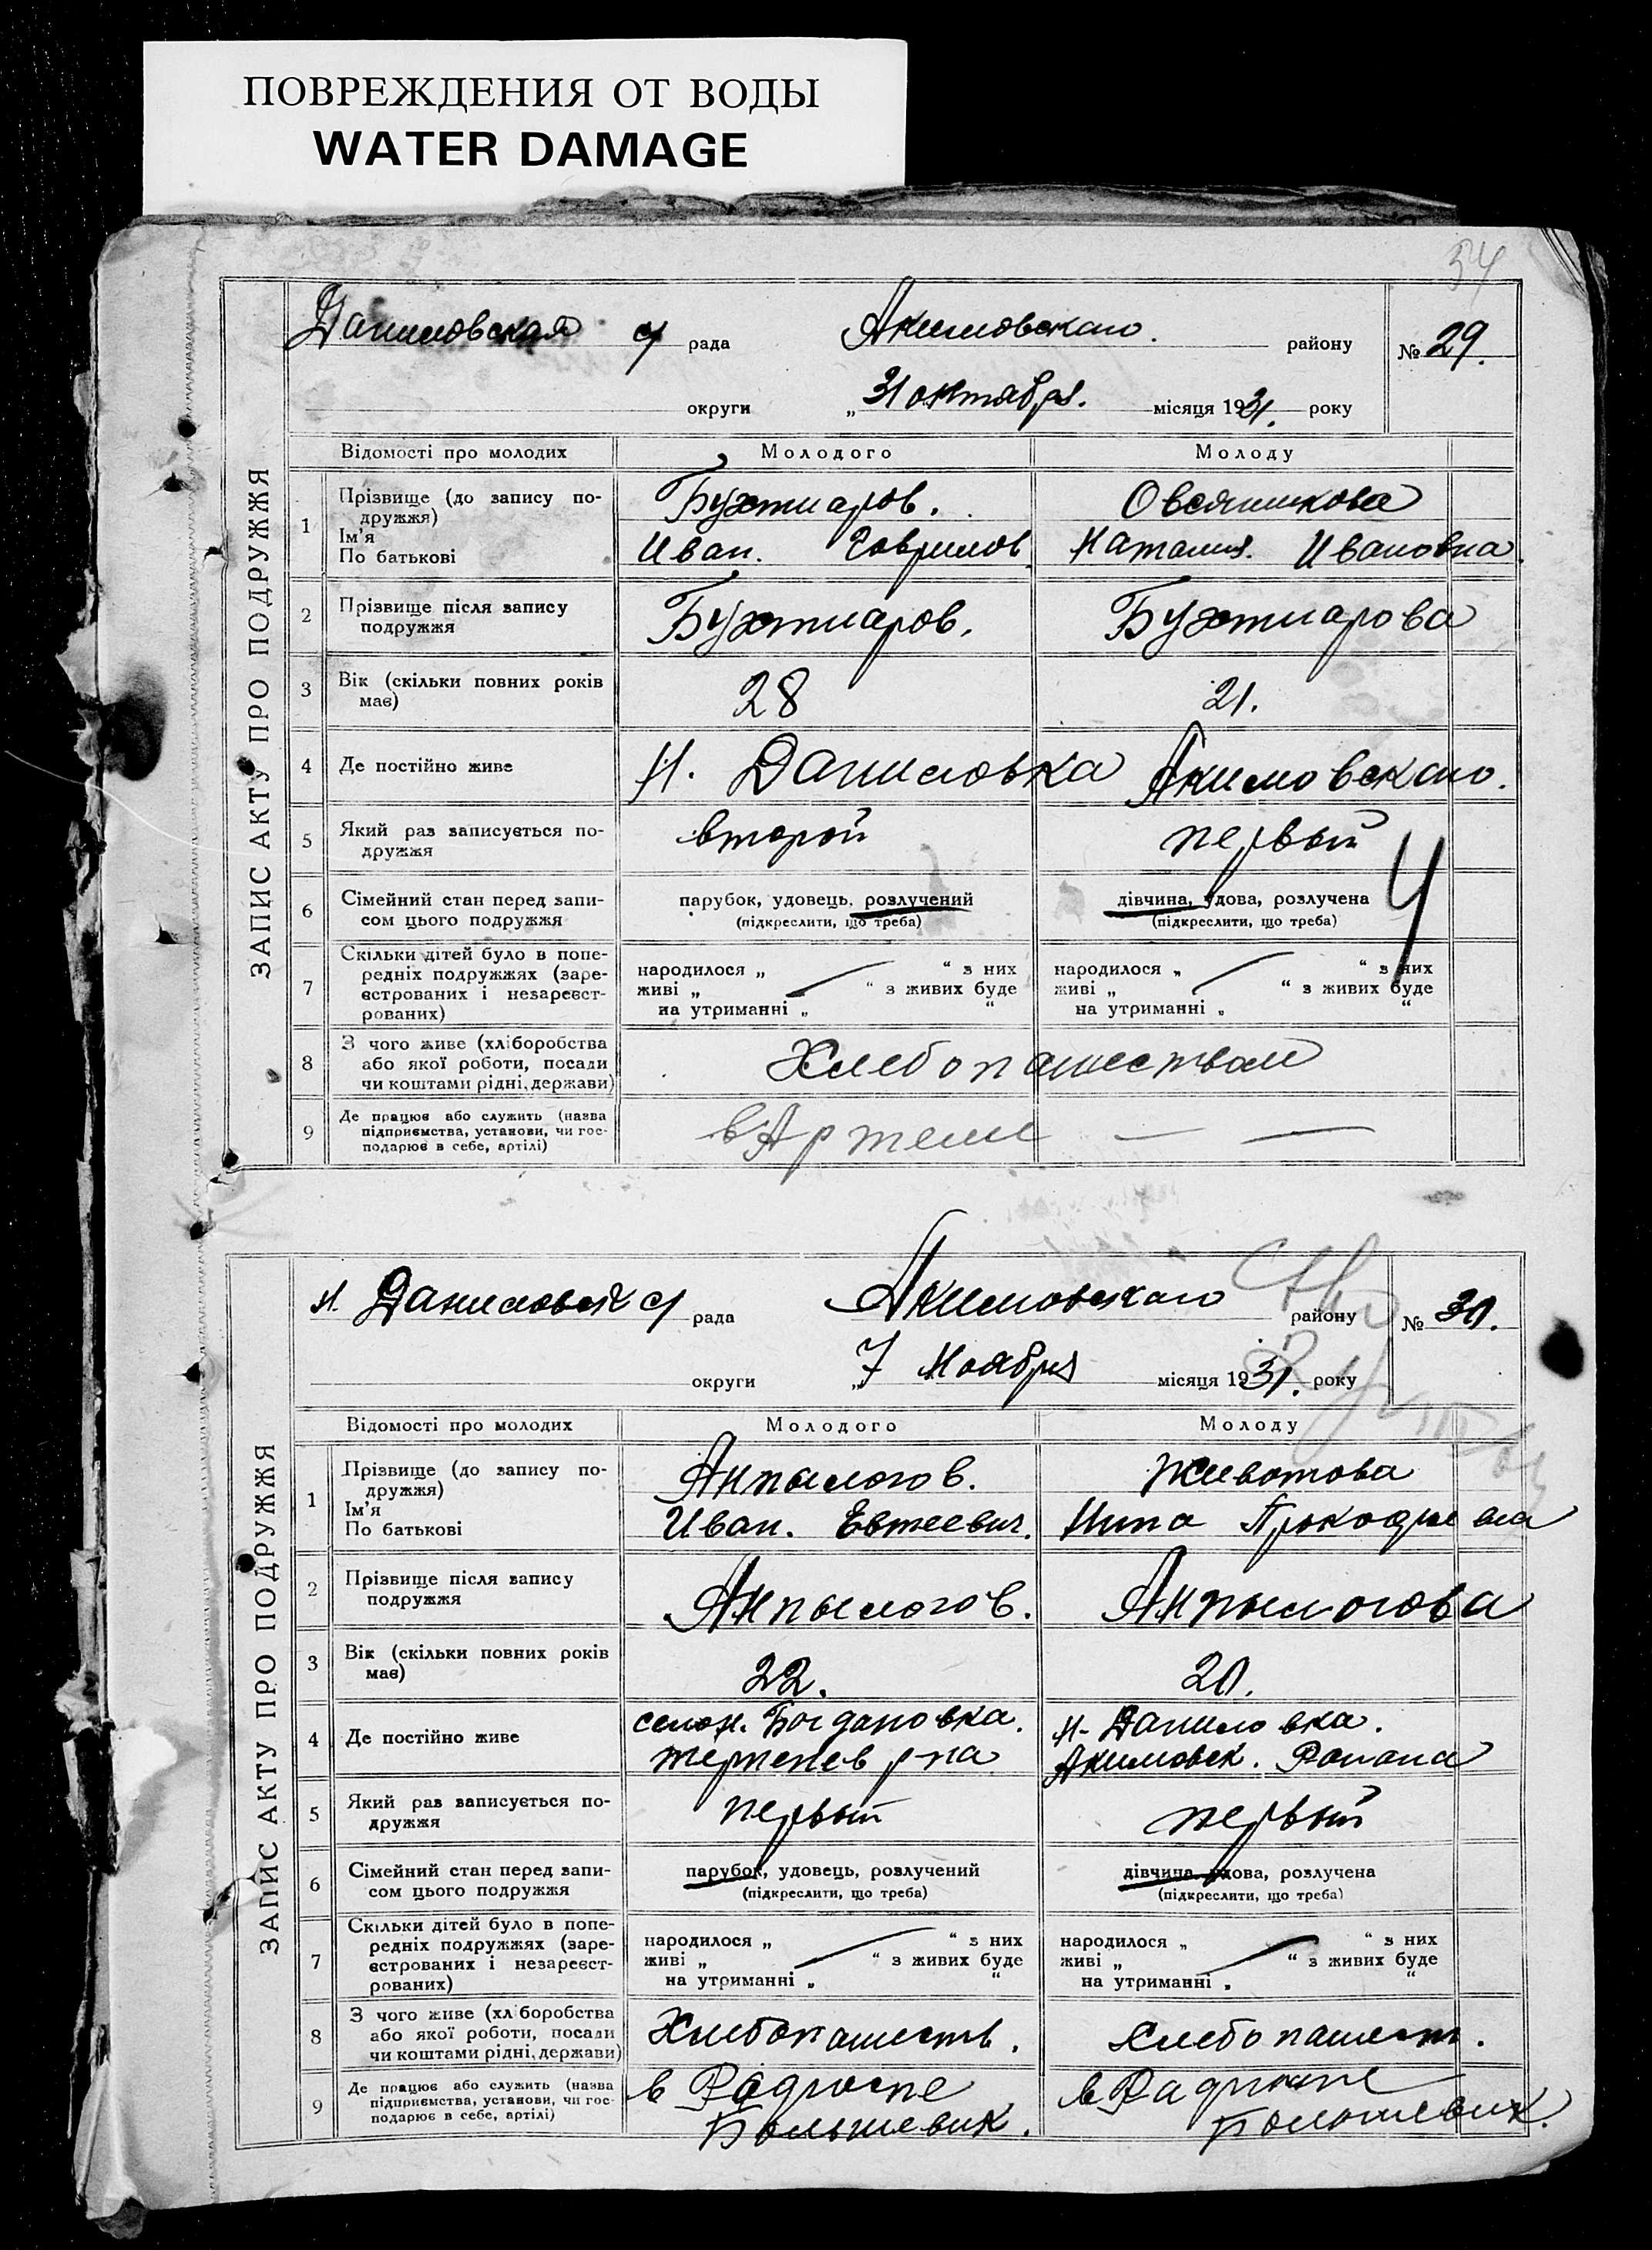 ПОВРЕЖДЕНИЯ ОТ ВОДЫ
WATER DAMAGE
54
ЗАПИС АКТУ ПРО ПОДРУЖЖЯ
Даниловская с/ рада Акимовского. району № 29.
округи „31 октября. місяця 1931. року
Відомості про молодих Молодого Молоду
1 Прізвище (до запису по-
дружжя) Бухтиаров. Овсянникова
Ім'я
По батькові Иван. Гаврилов. Наталия. Ивановна.
2 Прізвище після запису
подружжя Бухтиаров. Бухтиарова
3 Вік (скільки повних років
має) 28 21.
4 Де постійно живе Н. Даниловка Акимовского.
5 Який раз записується по-
дружжя второй первый
6 Сімейний стан перед запи-
сом цього подружжя
парубок, удовець, розлучений дівчина, удова, розлучена
(підкреслити, що треба) (підкреслити, що треба)
7 Скільки дітей було в попе-
редніх подружжях (заре-
єстрованих і незареєст-
рованих)
народилося „ “ з них народилося „ “ з них
живі „ “ з живих буде живі „ “ з живих буде
на утриманні „ “ на утриманні „ “
8 З чого живе (хліборобства
або якої роботи, посади
чи коштами рідні, держави) Хлебопашеством
9 Де працює або служить (назва
підприємства, установи, чи гос-
подарює в себе, артілі) в Артели — —
ЗАПИС АКТУ ПРО ПОДРУЖЖЯ
Н. Даниловск с/ рада Акимовского району № 30.
округи „7 Ноября місяця 1931. року
Відомості про молодих Молодого Молоду
1 Прізвище (до запису по-
дружжя) Анпылогов. Животова
Ім'я
По батькові Иван. Евтеевич. Нина Прокофиевна
2 Прізвище після запису
подружжя Анпылогов. Анпылогова
3 Вік (скільки повних років
має) 22. 20.
4 Де постійно живе Богдановка. Н-Даниловка.
р-на Акимовск. Району
5 Який раз записується по-
дружжя первый первый
6 Сімейний стан перед запи-
сом цього подружжя
парубок, удовець, розлучений дівчина, удова, розлучена
(підкреслити, що треба) (підкреслити, що треба)
7 Скільки дітей було в попе-
редніх подружжях (заре-
єстрованих і незареєст-
рованих)
народилося „ “ з них народилося „ “ з них
живі „ “ з живих буде живі „ “ з живих буде
на утриманні „ “ на утриманні „ “
8 З чого живе (хліборобства
або якої роботи, посади
чи коштами рідні, держави) Хлебопашеств. Хлебопашест.
9 Де працює або служить (назва
підприємства, установи, чи гос-
подарює в себе, артілі) в Радгоспе в Радгоспе
Большевик. Большевик.